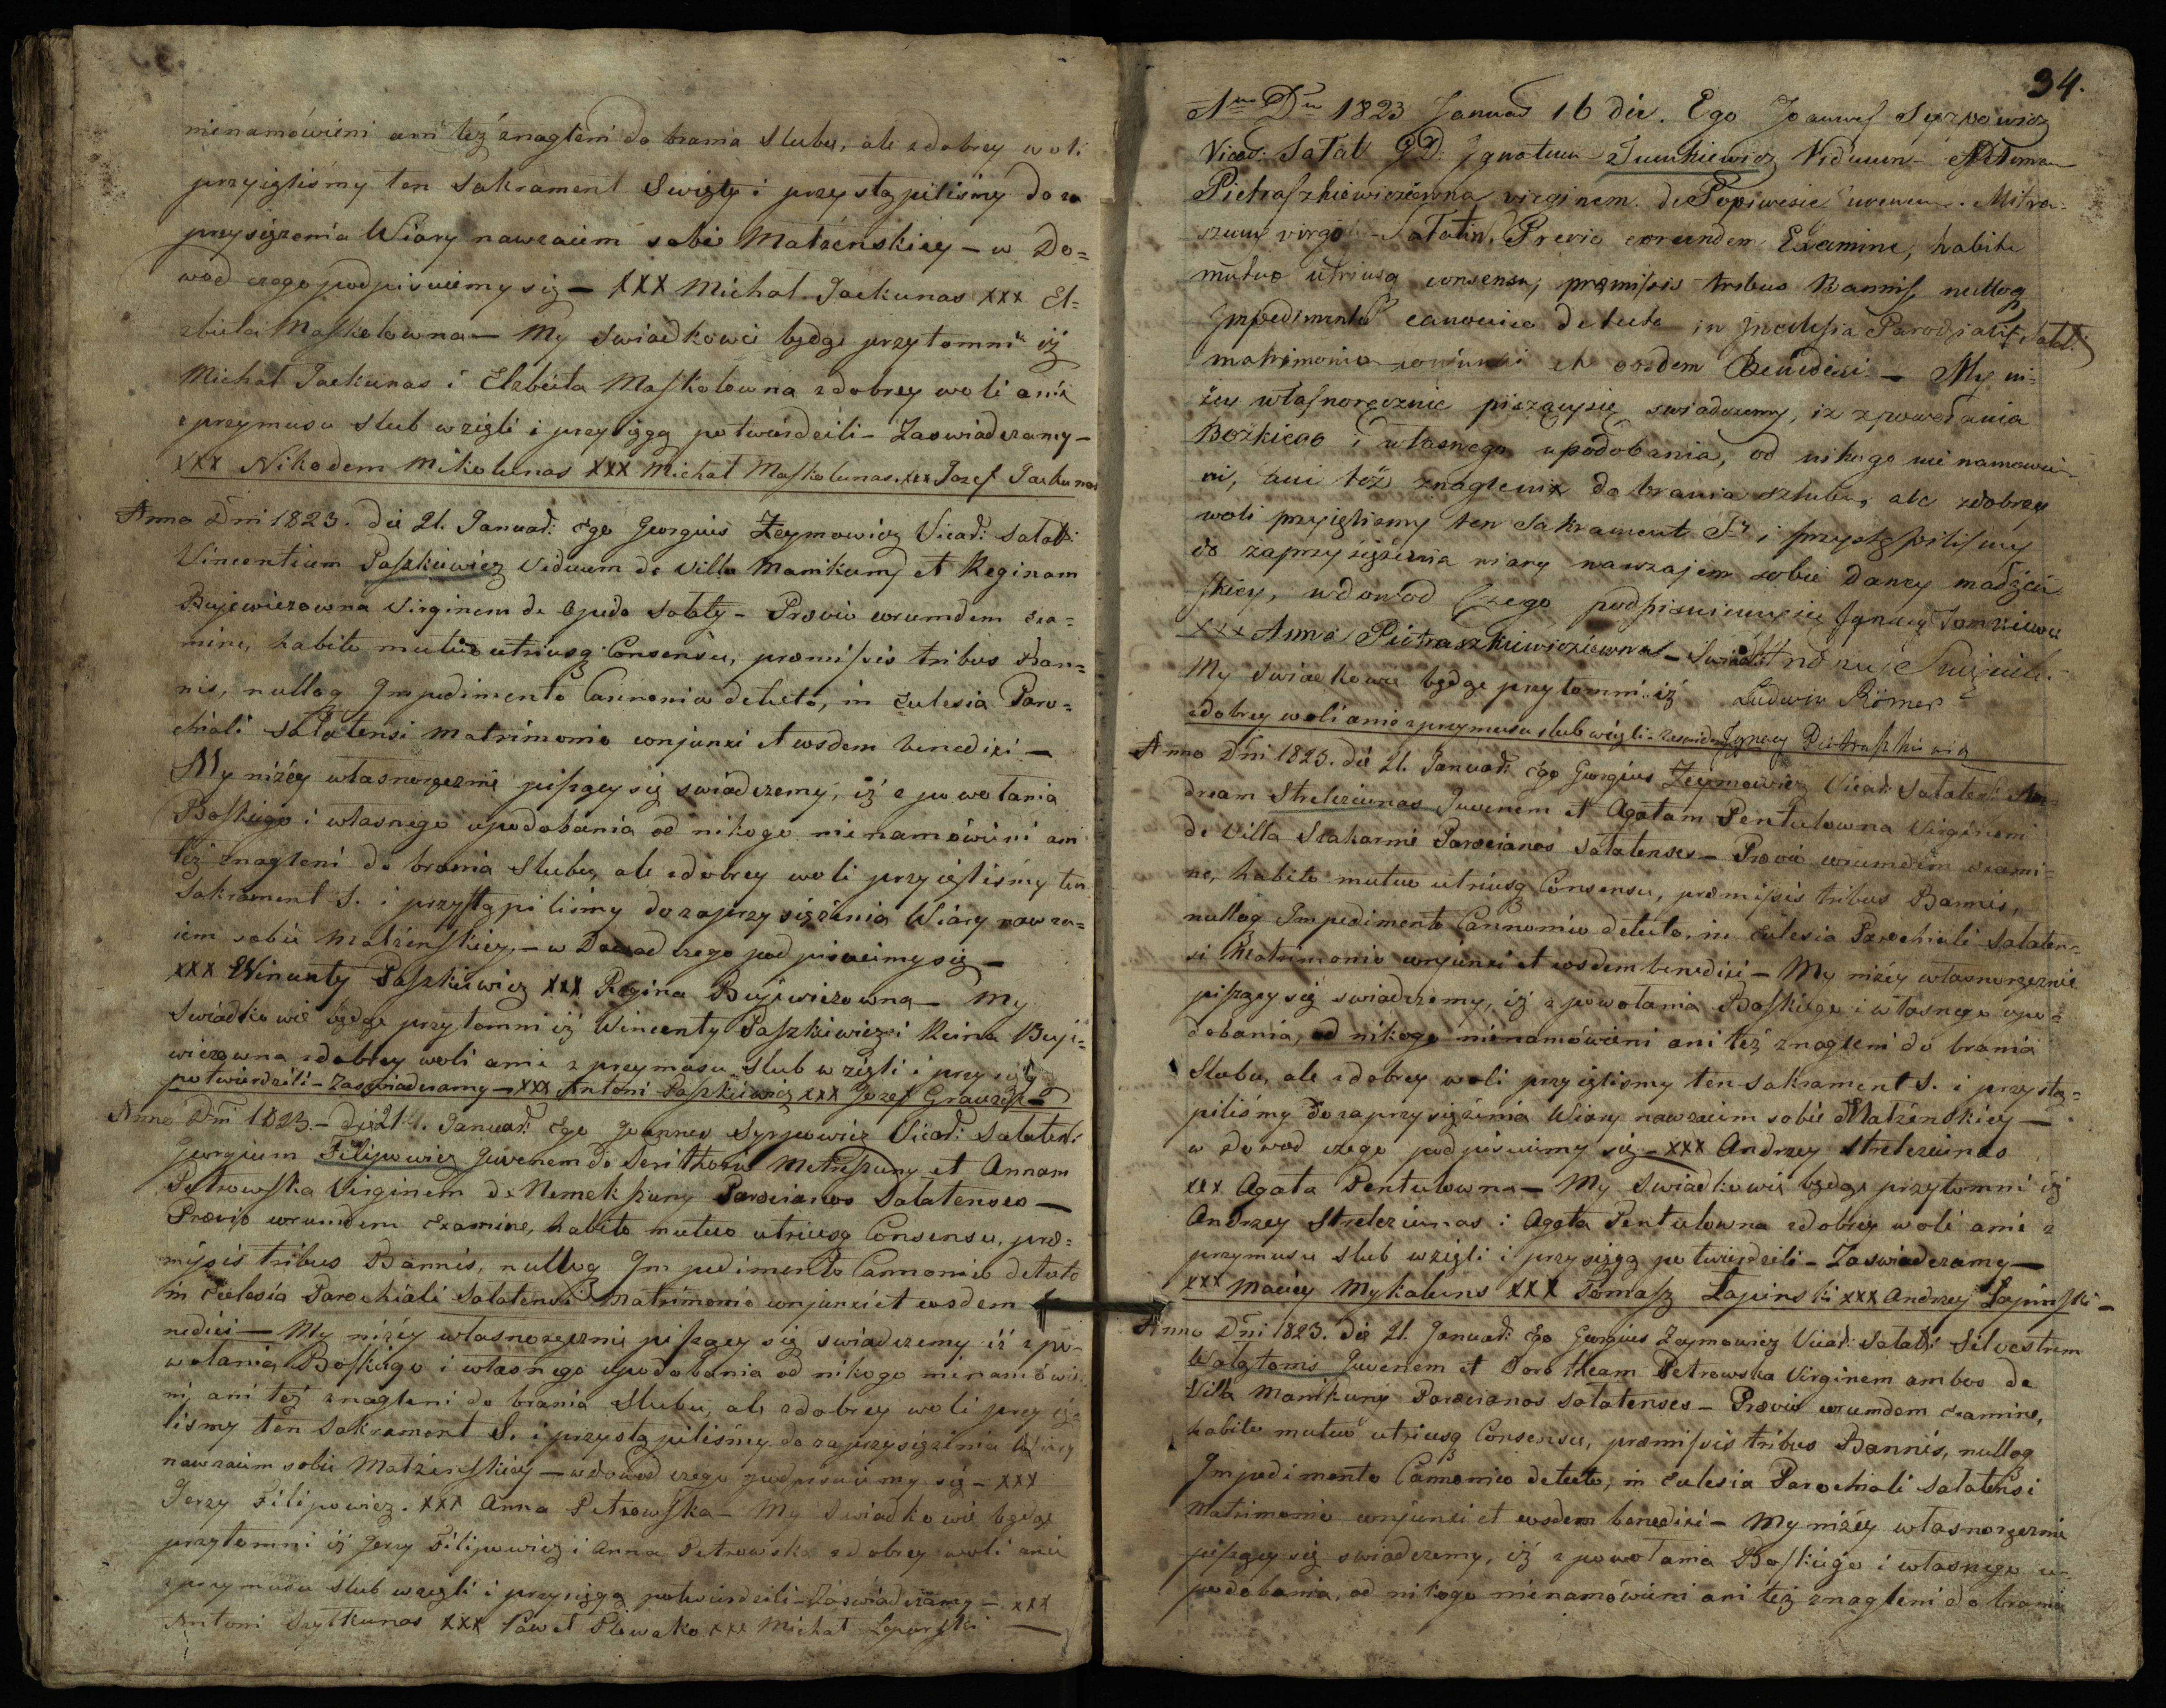 nienamówieni ani też znagleni do brania Slubu, ale zdobrey woli
przyięliśmy ten Sakrament Swięty i przystąpiliśmy do za
przysiężenia Wiary nawzaiem sobie Matżenskiey – w Do=
wod czego podpisuiemy się – XXX Michał Jackunas XXX El=
zbieta Maſkolowna – My Swiadkowie będąc przytomni iż
Michał Jackunas i Elzbieta Maſkolowna zdobrey woli anie
z przymusu slub wzięli i przysięgą potwierdzili – Zaswiadczamy –
XXX Nikodem Mikolunas XXX Michał Maſkolunas. XXX Jozef Jackunas
Anno Dni 1823. die 21. Januar: Ego Georgius Zeymowicz Vicar: Salat:
Vincentium Paſzkiewicz Viduum de Villa Manikuny et Reginam
Bujewiczowna Virginem de Opido Sałaty – Prævio eorumdem Exa=
mine, habito mutuo utriusq Consensu, præmiſsis tribus Ban=
nis, nulloq Impedimento Cannonico detecto, in Eclesia Paro=
chiali Salatensi Matrimonio conjunxi et eosdem benedixi –
My niżey własnoręcznie piſzący się swiadczemy, iż z powołania
Boſkiego i własnego upodobania od nikogo nie namówieni ani
też znagleni do brania Slubu, ale zdobrey woli przyięliśmy ten
Sakrament S. i przyſtąpiliśmy do zaprzysiężenia Wiary nawza=
iem sobie Matżenſkiey, – w Dowod czego podpisuiemy się –
XXX Wincenty Paſzkiewicz XXX Regina Bujewiczowna – My
Swiadkowie będąc przytomni iż Wincenty Paſzkiewicz i Reina Buje=
wiczowna zdobrey woli anie z przymusu Slub wzięli i przysięgą
potwierdzili – Zaswiadczamy – XXX Antoni Paſzkiewicz XXX Jozef
Anno Dni 1823. – Die 21. Januar: Ego Joannes Syrpowicz Vicar: Salaten:
Georgium Filipowicz Juvenem de Metreſzuny et Annam
Petrowſka Virginem de Nemekſzuny Parocianos Salatenses –
Prævio eorumdem Examine, habito mutuo utriusq Consensu, præ=
miſsis tribus Bannis, nulloq Impedimento Cannonico detecto
in Eclesia Parochiali Salatensi Matrimonio conjunxi et eosdem
nedixi – My niżéy własnoręcznie piſzący się swiadczemy iż z po=
wołania Boſkiego i własnego upodobania od nikogo nienamówie=
ni, ani też znagleni do brania Slubu, ale zdobrey woli przyię=
lismy ten Sakrament S. i przystąpiliśmy do zaprzysiężenia Wiary
nawzaiem sobie Matżenſkiey – w dowod czego podpisuiemy się – XXX
Jerzy Filipowicz. XXX Anna Petrowſka – My Swiadkowie będąc
przytomni iż Jerzy Filipowicz i Anna Petrowska zdobrey woli anie
z przymusu Slub wzięli i przysięgą potwierdzili – Zaswiadczamy – XXX
Antoni Szytkunas XXX Paweł Plewako XXX Michał
34.
Ano Dni 1823 Januar 16 die. Ego Joannes Syrpowicz
Vicar: Salat GD: Ignatium Tumkiewicz Viduum
Pietraſzkiewiczówna virginem de Popiwesie
virgo Salatin. Previo eorundem Examine, habito
mutuo utriusq consensu, premiſsis tribus Bannis, nulloq
Impedimento canonico detecto in Ecclesia Parochiali Salat:
matrimonio conjunxi et eosdem Benedixi – My ni=
żey własnoręcznie piszący się swiadczemy, iz z powołania
Bozkiego i własnego upodobania, od nikogo nie namowie=
ni, ani téż znagleni do brania szlubu, ale zdobrey
woli przyieliśmy ten Sakrament S. i przystąpiliśmy
do zaprzysiężenia wiary nawzajem sobie daney małżen
ſkiey, wdowod czego podpisuiemy się Ignacy Tomkiewicz
XXX Anna Pietraszkiewiczówna –
My Swiadkowie będąc przytomni iż Ludwik Römer
zdobrey woli anie z przymusu slub wzięli – Ignacy Pietraſzkiewicz
Anno Dni 1823. die 21. Januar: Ego Georgius Zeymowicz Vicar: Salaten: An=
dream Strelcziunas Juvenem et Agatam Pentulowna Virginem
de Villa Szakarnie Parocianos Salatenses – Prævio eorumdem Exami=
ne, habito mutuo utriusq Consensu, præmiſsis tribus Bannis,
nulloq Impedimento Cannonico detecto, in Eclesia Parochiali Salaten=
si Matrimonio conjunxi et eosdem benedixi – My niżéy własnoręcznie
piſzący się swiadczemy, iż z powołania Boſkiego i własnego upo=
dobania, od nikogo nienamówieni ani też znagleni do brania
Slubu, ale zdobrey woli przyięlismy ten Sakrament S. i przystą=
piliśmy do zaprzysiężenia Wiary nawzaiem sobie Matżenskiey –
w dowod czego podpisuiemy się – XXX Andrzey Strelcziunas
XXX Agata Pentulowna – My Swiadkowie będąc przytomni iż
Andrzey Strelcziunas i Agata Pentulowna zdobrey woli anie z
przymusu Slub wzięli i przysięgą potwierdzili – Zaswiadczamy –
XXX Maciey Mykaluns XXX Tomaſz Łapinski XXX Andrzey Łapinſki –
Anno Dni 1823. die 21. Januar: Ego Georgius Zeymowicz Vicar: Salat: Silvestrum
Wałątonis Juvenem et Dorotheam Petrowska Virginem amboo de
Villa Manikuny Parocianos Salatenses – Prævio eorumdem Examine,
habito mutuo utriusq Consensu, præmiſsis tribus Bannis, nulloq
Impedimento Cannonico detecto, in Eclesia Parochiali Salatensi
Matrimonio conjunxi et eosdem benedixi – My niżéy własnoręcznie
piſzący się swiadczemy, iż z powołania Boſkiego i własnego u=
podobania, od nikogo nienamówieni ani też znagleni do brania